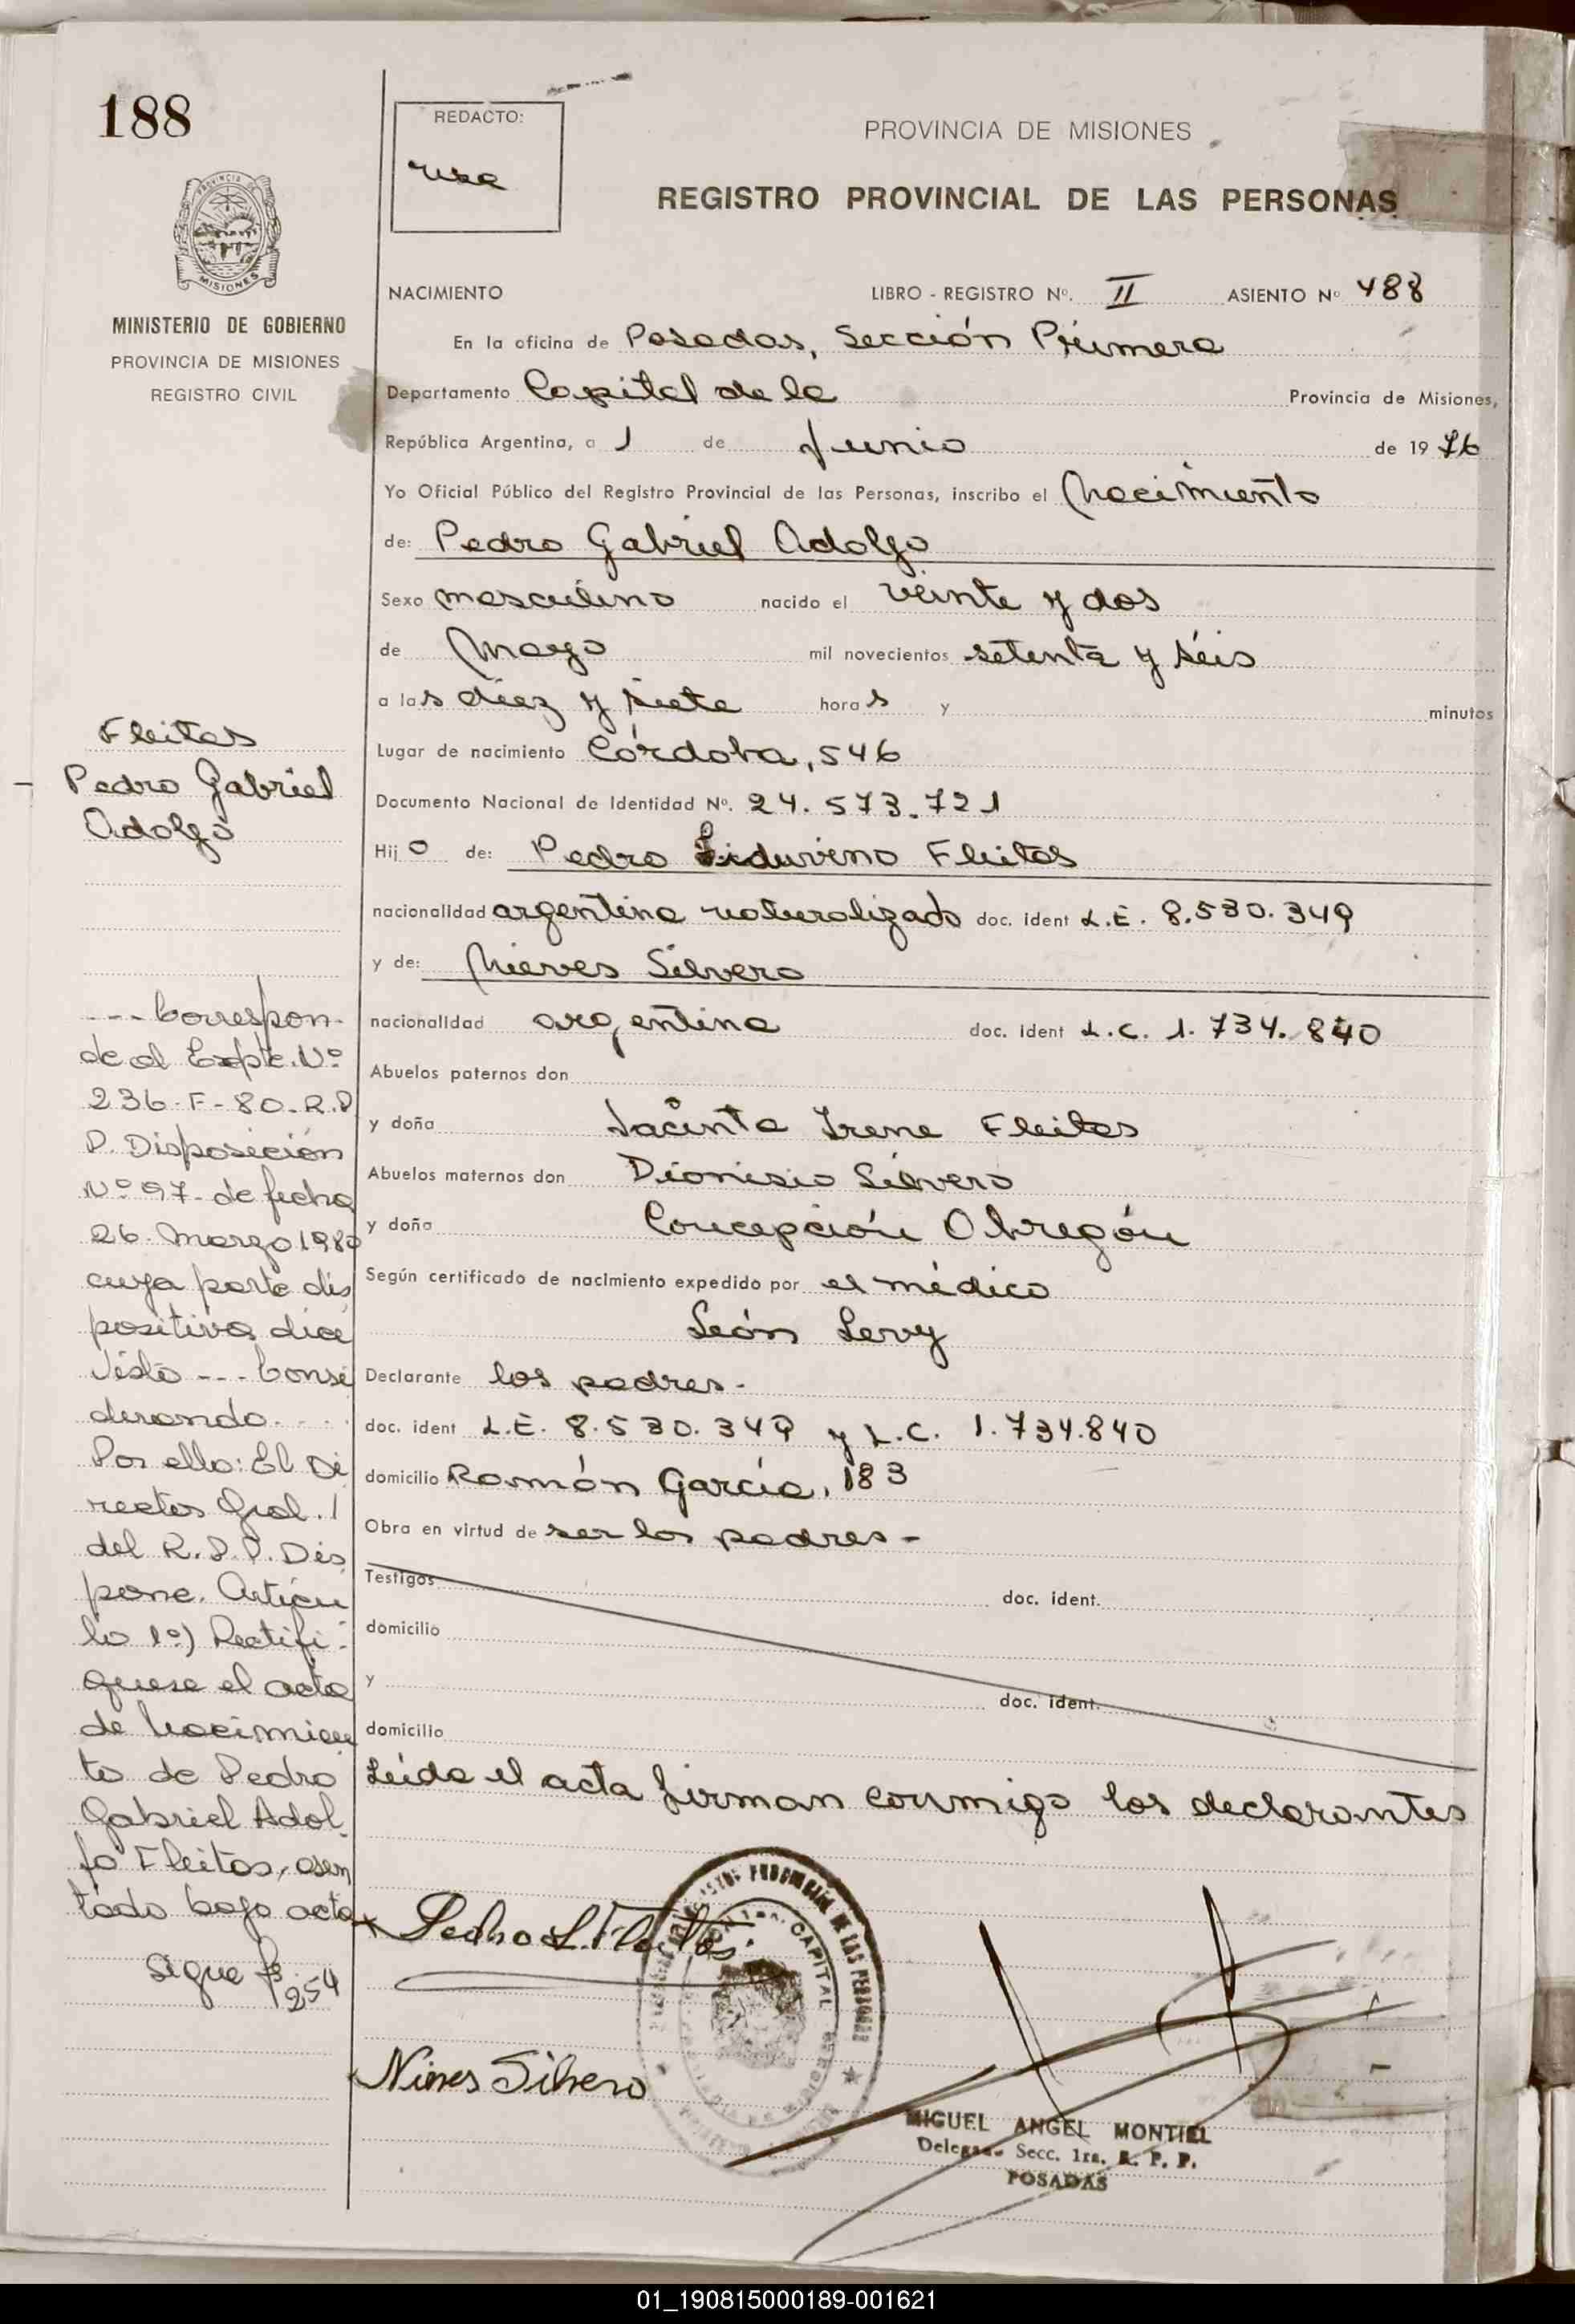 188
PROVINCIA DE
MISIONES
MINISTERIO DE GOBIERNO
PROVINCIA DE MISIONES
REGISTRO CIVIL
Fleitas
Pedro Gabriel
Adolfo
--- Correspon-
de al Expte. Nº
236-F-80-R.P
P. Disposición
Nº 97- de fecha
26- Marzo 1980
cuya parte dis
positiva dice
Visto --- Consi
derando....
Por ello: El Di
rector Gral. /
del R.P.P. Dis
pone. Artícu
lo 1º) Rectifi-
quese el acta
de Nacimien
to de Pedro
Gabriel Adol-
fo Fleitas, asen
tado bajo acta
Sigue fº
254
REDACTO:
PROVINCIA DE MISIONES
REGISTRO PROVINCIAL DE LAS PERSONAS
NACIMIENTO LIBRO - REGISTRO Nº. II ASIENTO Nº 488
En la oficina de Posadas, Sección Primera
Departamento Capital de la Provincia de Misiones,
República Argentina, a 1 de Junio de 1976
Yo Oficial Público del Registro Provincial de las Personas, inscribo el Nacimiento
de: Pedro Gabriel Adolfo
Sexo masculino nacido el veinte y dos
de Mayo mil novecientos setenta y séis
a las diez y siete horas y minutos
Lugar de nacimiento Córdoba, 546
Documento Nacional de Identidad Nº. 24.573.721
Hijo de: Pedro Liduvino Fleitas
nacionalidad argentino naturalizado doc. ident L.E. 8.530.349
y de: Nieves Silvero
nacionalidad argentina doc. ident L.C. 1.734.840
Abuelos paternos don
y doña Jacinta Irene Fleitas
Abuelos maternos don Dionisio Silvero
y doña Concepción Obregón
Según certificado de nacimiento expedido por el médico
León Levy
Declarante los padres.-
doc. ident L.E. 8.530.349 y L.C. 1.734.840
domicilio Román García, 183
Obra en virtud de ser los padres-
Testigos doc. ident.
domicilio
y doc. ident.
domicilio
Leída el acta firman conmigo los declarantes
Pedro L. Fleitas
Nieves Silvero
CAPITAL
DE LAS PERSONAS
MIGUEL ANGEL MONTIEL
Delegado Secc. 1ra. R. P. P.
POSADAS
01_190815000189-001621